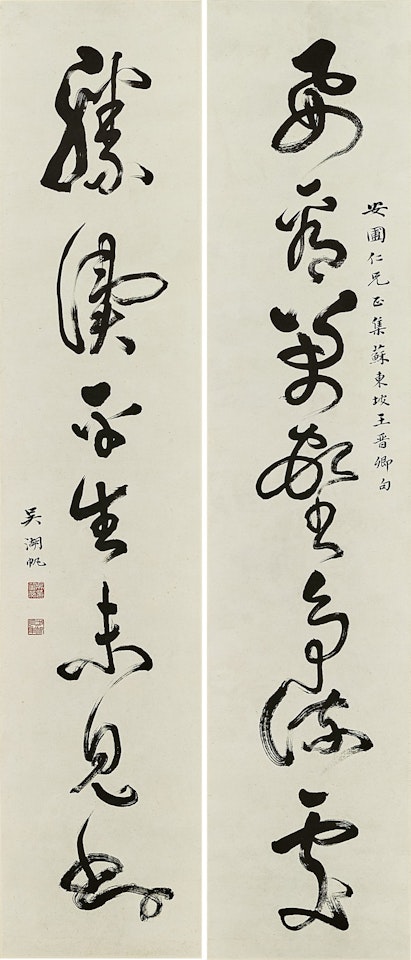 要看萬壑爭流處
安圃仁兄正集蘇東坡王晉卿句
勝讀平生未見書
吳湖帆